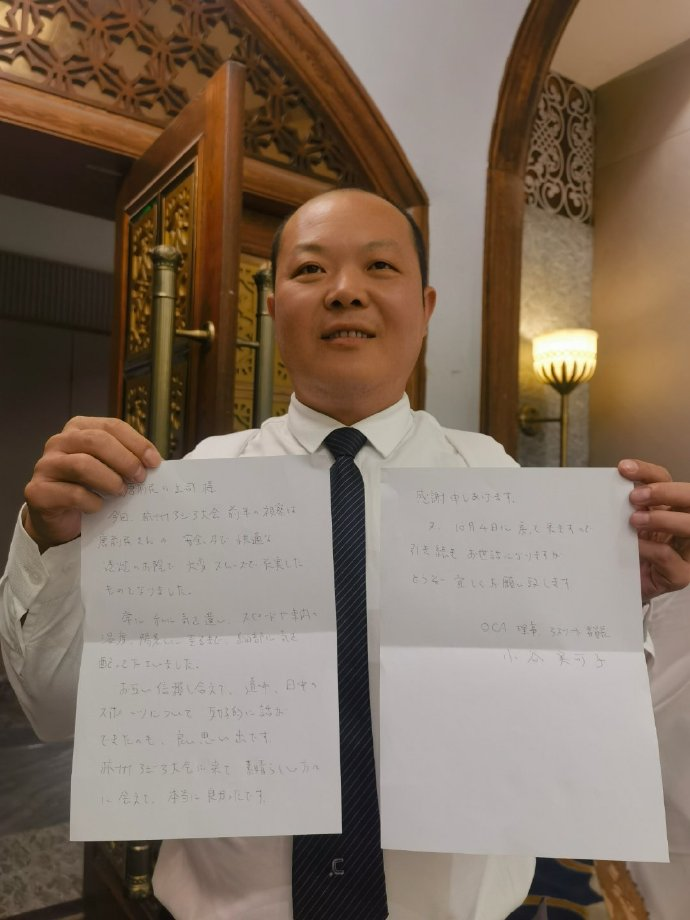 上司 様
今回、杭州アジア大会 前半の視察は
さんの 安全 及び 快適な
運転のお陰で 大変 スムーズで 充実した
ものとなりました。
常に 私に 気を遣い、スピードや 車内の
温度、 に 至るまで、 細部に 気を
配って下さいました。
お互い 信頼し合えて、 道中、 日中の
スポーツについて 友好的に 話が
できたのも、 良い思い出です
杭州アジア大会に来て 素晴らしい方々
に 会えて、 本当に 良かったです。
感謝申しあげます。
又、10月4日に 戻って来ますので
引き続き お世話になりますが
どうぞ 宜しくお願い致します
OCA 理事
小谷実可子